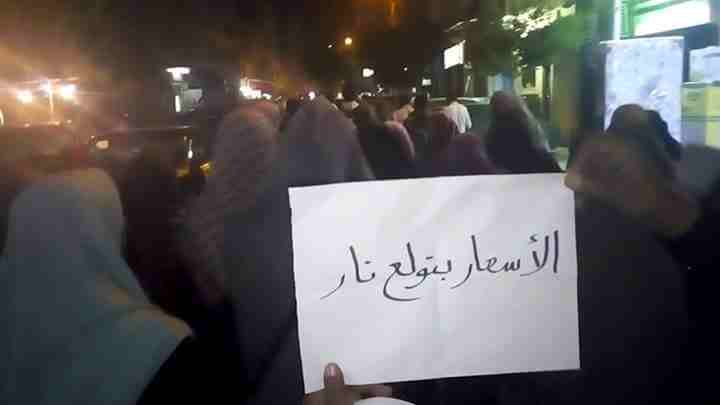 الأسعار بتولع نار